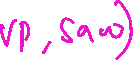 vp, saw)